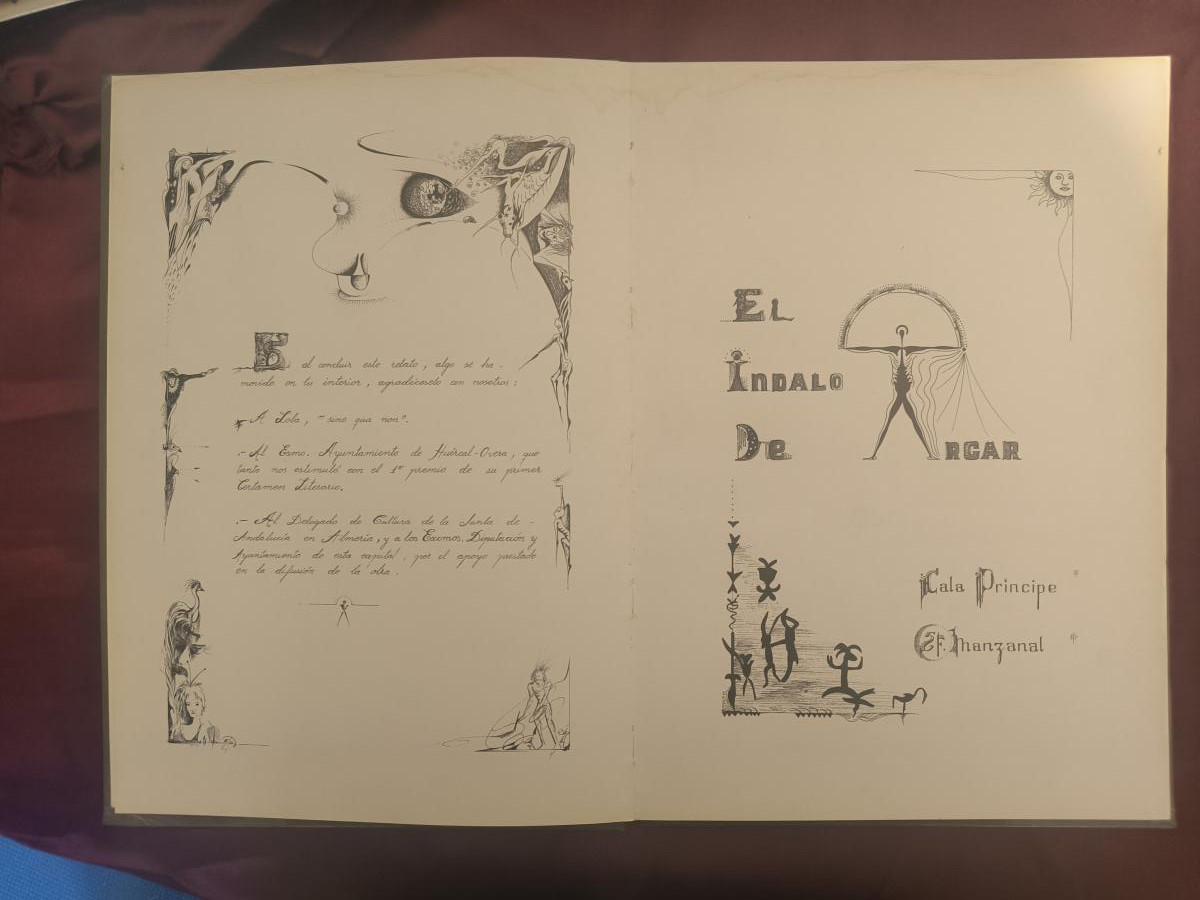 al concluir este relato, algo se ha -
movido en tu interior, agradéceselo con nosotros:
A Lola, "sine qua non".
.- Al Exmo. Ayuntamiento de Huércal-Overa, que
tanto nos estimuló con el 1er premio de su primer
Certamen Literario.
.- Al Delegado de Cultura de la Junta de -
Andalucía en Almería, y a los Excmos. Diputación y
Ayuntamiento de esta capital, por el apoyo prestado
en la difusión de la obra.
EL
ÍNDALO
DE ARGAR
Cala Principe
F. Manzanal